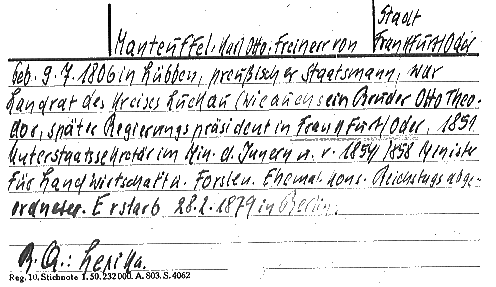 Stadt
Manteuffel, Karl Otto, Freiherr von Frankfurt/Oder
Geb. 9.7.1806 in Lübben, preußischer Staatsmann, war
Landrat des Kreises Luckau (wie auch sein Bruder Otto Theo-
dor, später Regierungspräsident in Frankfurt/Oder, 1851
Unterstaatssekretär im Min. d. Innern u. v. 1854/1858 Ministe
für Landwirtschaft u. Forsten. Ehemal. kons. Reichstagsabge-
ordneter. Er starb 28.2.1879 in Berlin.
B.Q.: Lexika.
Reg. 10. Stichnote 1. 50. 232000. A. 803. S. 4062